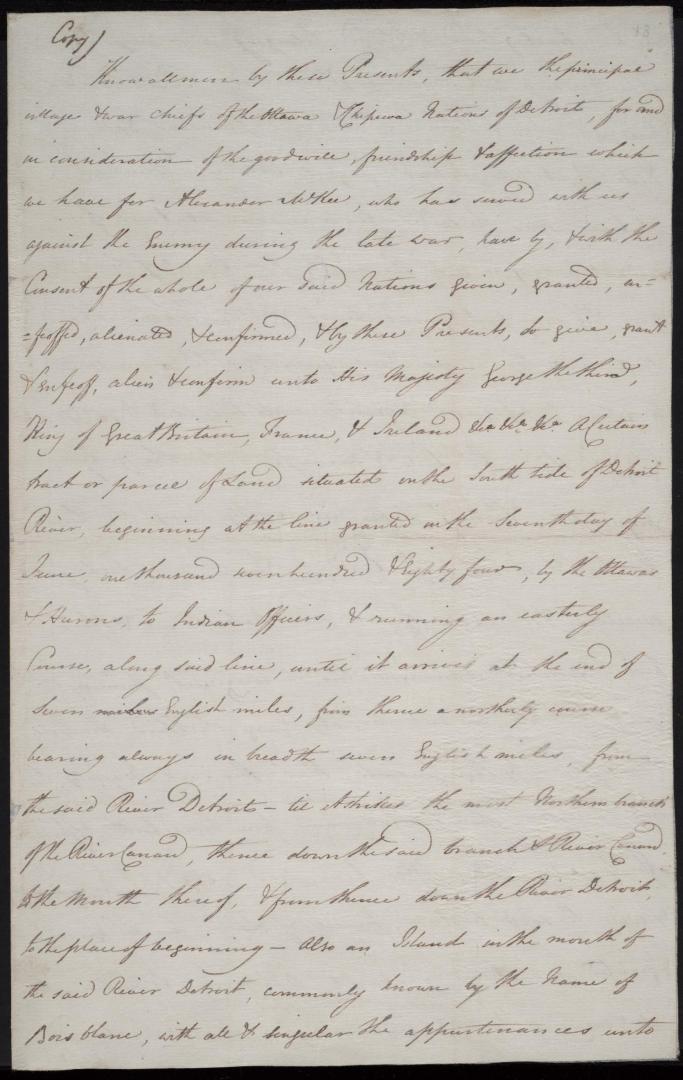 Copy)
13
Know all men by these Presents, that we the principal
village & war Chiefs of the Ottawa & Chipewa Nations of Detroit, for and
in consideration of the goodwill, friendship & affection which
we have for Alexander McKee, who has served with us
against the Enemy during the late war, have by, & with the
Consent of the whole of our said Nations given, granted, en=
=feoffed, alienated, & confirmed, & by these Presents, do give, grant
& enfeoff, alien & confirm unto His Majesty George the third,
King of Great Britain, France, & Ireland &ca &ca &ca A Certain
tract or parcel of Land situated on the South side of Detroit
River, beginning at the line granted on the Seventh day of
June, one thousand seven hundred & Eighty four, by the Ottawas
& Hurons, to Indian Officers, & running an easterly
Course, along said line, until it arrives at the end of
Seven miles English miles, from thence a northerly course
bearing always in breadth seven English miles, from
the said River Detroit - til it strikes the most Northern branch
of the River Canard, thence down the said branch & River Canard
to the Mouth thereof, & from thence down the River Detroit,
to the place of beginning - Also an Island in the mouth of
the said River Detroit, commonly known by the Name of
Bois blanc, with all & singular the appurtenances unto